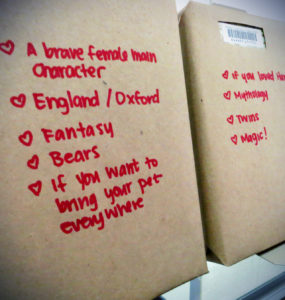 ♡ A brave female main
character
♡ England / Oxford
♡ Fantasy
♡ Bears
♡ If you want to
bring your pet
everywhere
♡ if you loved
♡ Mythology
♡ Twins
♡ Magic!